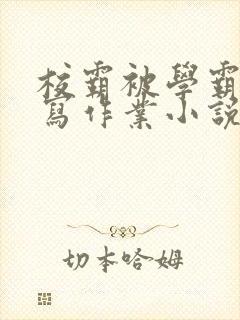 校霸被學霸
寫作業小說
切本哈姆